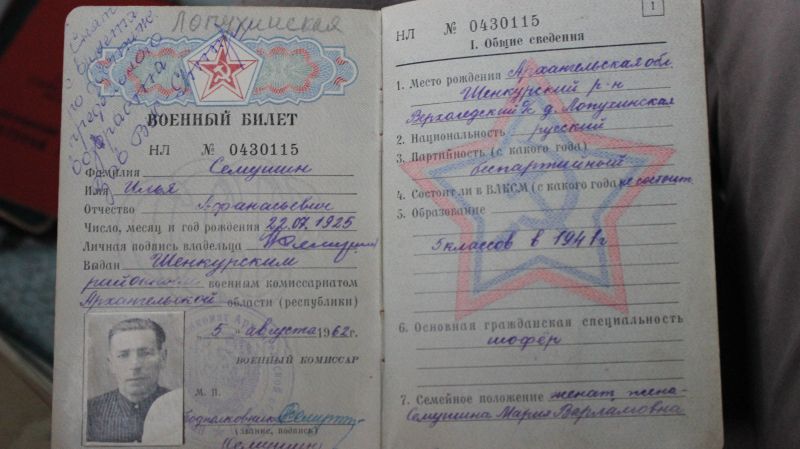 Лопухинская
Снят
с учёта
по
предельного
возраста
ВОЕННЫЙ БИЛЕТ
НЛ № 0430115
Фамилия Семушин
Имя Илья
Отчество Афанасьевич
Число, месяц и год рождения 22.07.1925
Личная подпись владельца
Выдан Шенкурским
районным военным комиссариатом
Архангельской области (республики)
5 " августа 1962 г.
ВОЕННЫЙ КОМИССАР
М. П.
подполковник
(звание, подпись)
Семушин
1
НЛ № 0430115
I. Общие сведения
1. Место рождения Архангельская обл.
Шенкурский р-н
д. Лопухинская
2. Национальность русский
3. Партийность (с какого года)
беспартийный
4. Состоит ли в ВЛКСМ (с какого года) не состоит
5. Образование
5 классов в 1941 г
6. Основная гражданская специальность
шофёр
7. Семейное положение женат жена-
Семушина Мария Варламовна